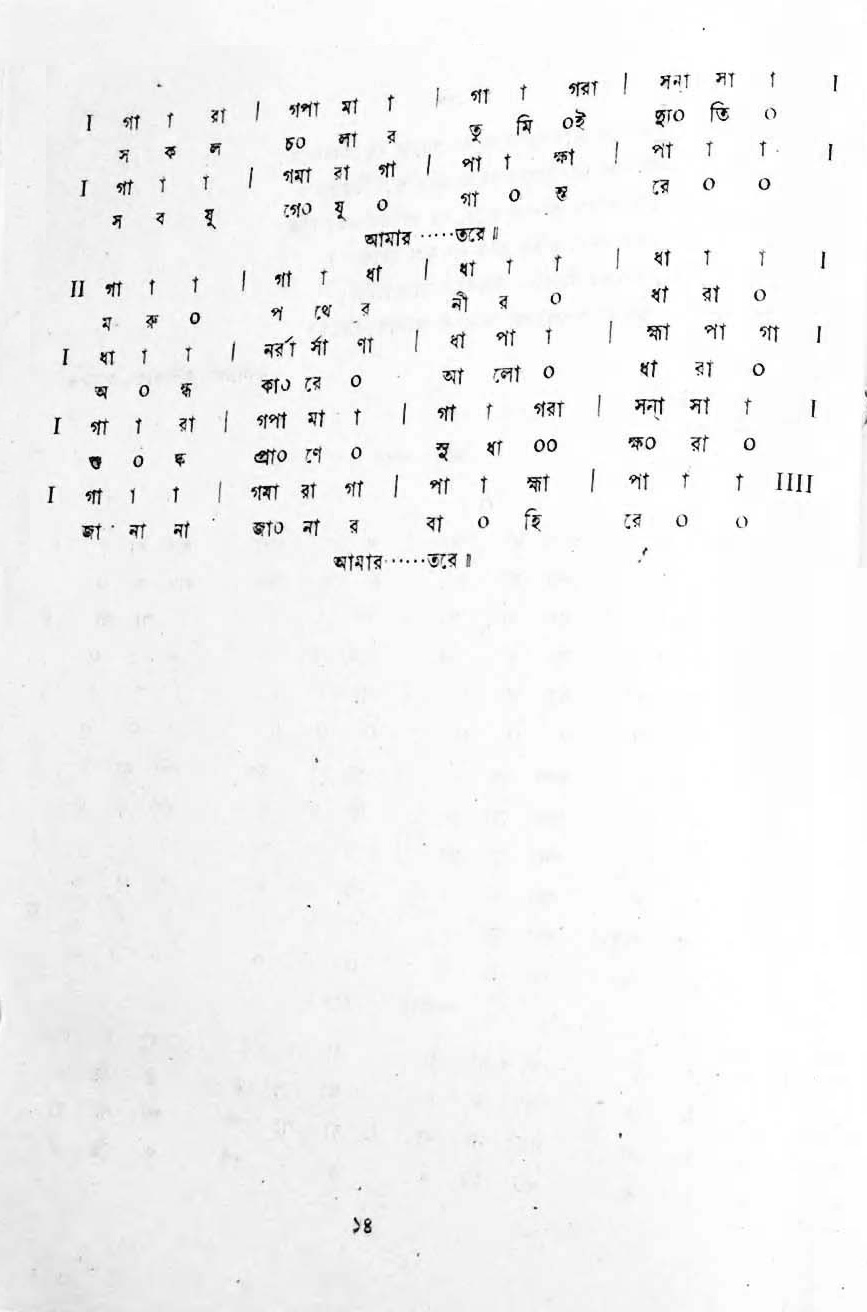 I গা া রা | গপা মা া | গা া গরা | সন্া সা া I
স ক ল চ০ লা র তু মি ০ই দ্যু০ তি ০
I গা া া | গমা রা গা | পা া ক্ষা | পা া া I
স ব যু গে০ যু ০ গা ০ ন্ত রে ০ ০
আমার ·····তরে॥
II গা া া | গা া ধা | ধা া া | ধা া া I
ম রু ০ প থে র নী র ০ ধা রা ০
I ধা া া | নর্রা র্সা ণা | ধা পা া | হ্মা পা গা I
অ ০ ন্ধ কা০ রে ০ আ লো ০ ধা রা ০
I গা া রা | গপা মা া | গা া গরা | সন্া সা া I
শু ০ ষ্ক প্রা০ ণে ০ সু ধা ০০ ক্ষ০ রা ০
I গা া া | গমা রা গা | পা া হ্মা | পা া া IIII
জা না না জা০ না র বা ০ হি রে ০ ০
আমার······তরে॥
১৪